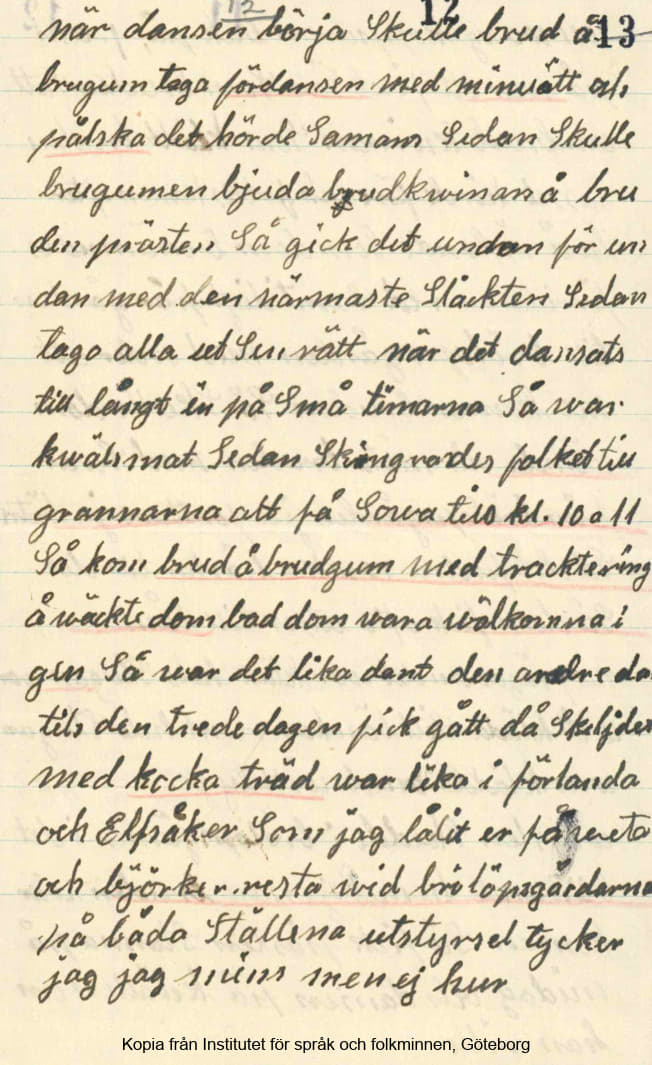 12
12 13
när dansen börja Skulle brud å
brugum taga fördansen med minuätt och
pålska det hörde Samans Sedan Skulle
brugumen bjuda brudkwinan å bru
den prästen Så gick det undan för un
dan med den närmaste Släkten Sedan
tago alla ut Sin rätt när det dansats
till långt in på Små timarna Så war
kwälsmat Sedan Skingrades folket till
grannarna att få Sowa till kl. 10 a 11
Så kom brud å brudgum med tracktering
å wäckte dom bad dom wara wälkomna i
gen Så war det lika dant den andre da
tils den trede dagen fick gått då Skiljdes
med kocka träd war lika i förlanda
och Elfsåker Som jag låtit er få weta
och björker resta wid brölöpsgårdarna
på båda Ställena utstyrsel tycker
jag jag mins men ej hur
Kopia från Institutet för språk och folkminnen, Göteborg